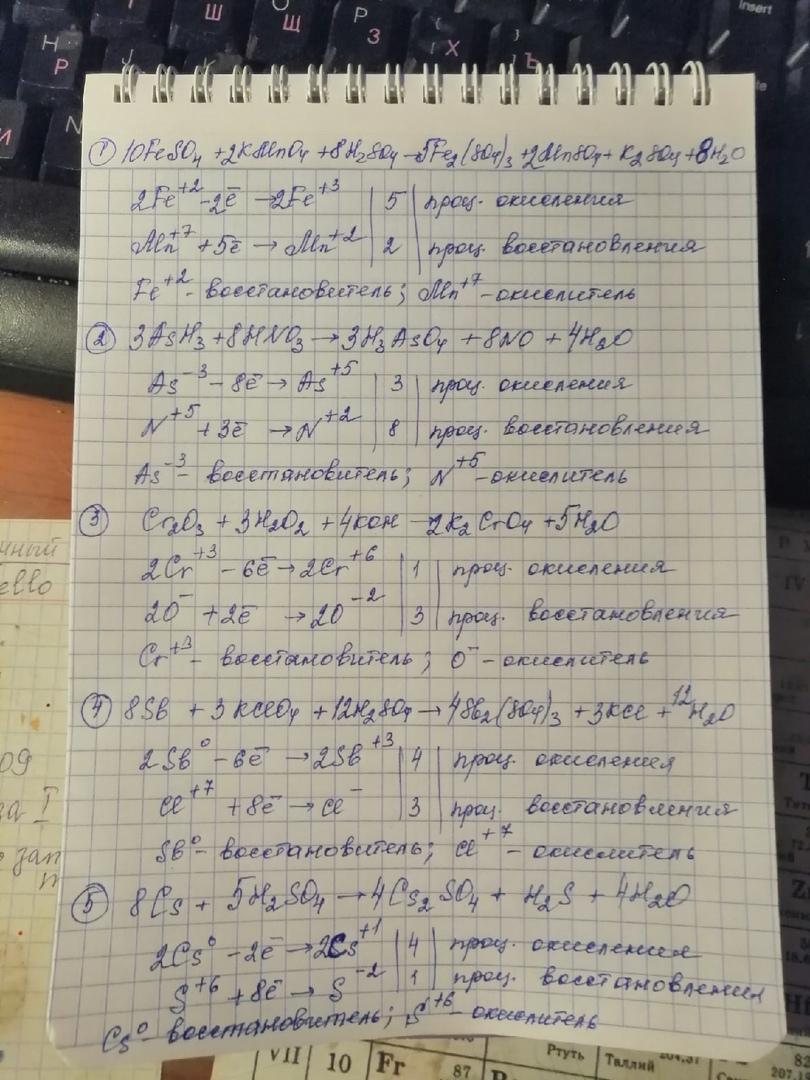 Н Р
Ш
Щ
Р З
Х
Ъ
И
Insert
① 10FeSO₄ + 2KMnO₄ + 8H₂SO₄ → 5Fe₂(SO₄)₃ + 2MnSO₄ + K₂SO₄ + 8H₂O
2Fe⁺² - 2ē → 2Fe⁺³ | 5 | проц. окисления
Mn⁺⁷ + 5ē → Mn⁺² | 2 | проц. восстановления
Fe⁺² - восстановитель; Mn⁺⁷ - окислитель
② 3AsH₃ + 8HNO₃ → 3H₃AsO₄ + 8NO + 4H₂O
As⁻³ - 8ē → As⁺⁵ | 3 | проц. окисления
N⁺⁵ + 3ē → N⁺² | 8 | проц. восстановления
As⁻³ - восстановитель; N⁺⁵ - окислитель
③ Cr₂O₃ + 3H₂O₂ + 4KOH → 2K₂CrO₄ + 5H₂O
2Cr⁺³ - 6ē → 2Cr⁺⁶ | 1 | проц. окисления
2O⁻ + 2ē → 2O⁻² | 3 | проц. восстановления
Cr⁺³ - восстановитель; O⁻ - окислитель
④ 8Sb + 3KClO₄ + 12H₂SO₄ → 4Sb₂(SO₄)₃ + 3KCl + 12H₂O
2Sb⁰ - 6ē → 2Sb⁺³ | 4 | проц. окисления
Cl⁺⁷ + 8ē → Cl⁻ | 3 | проц. восстановления
Sb⁰ - восстановитель; Cl⁺⁷ - окислитель
⑤ 8Cs + 5H₂SO₄ → 4Cs₂SO₄ + H₂S + 4H₂O
2Cs⁰ - 2ē → 2Cs⁺¹ | 4 | проц. окисления
S⁺⁶ + 8ē → S⁻² | 1 | проц. восстановления
Cs⁰ - восстановитель; S⁺⁶ - окислитель
VII 10 Fr 87
Ртуть Таллий